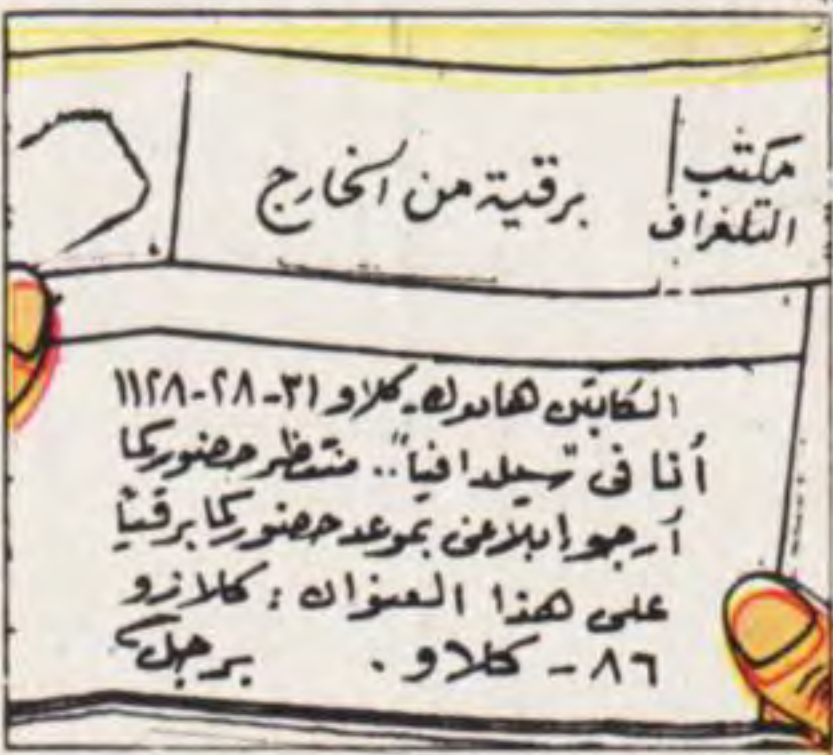 مكتب
التلغراف
برقية من الخارج
الكابتن هادوك - كلاو ٣١-٢٨-١١٢٨
أنا فى "سيلدافيا" .. منتظر حضوركما
أرجو إبلاغى بموعد حضوركما برقيًا
على هذا العنوان : كلازرو
٨٦ - كلاو . برجل